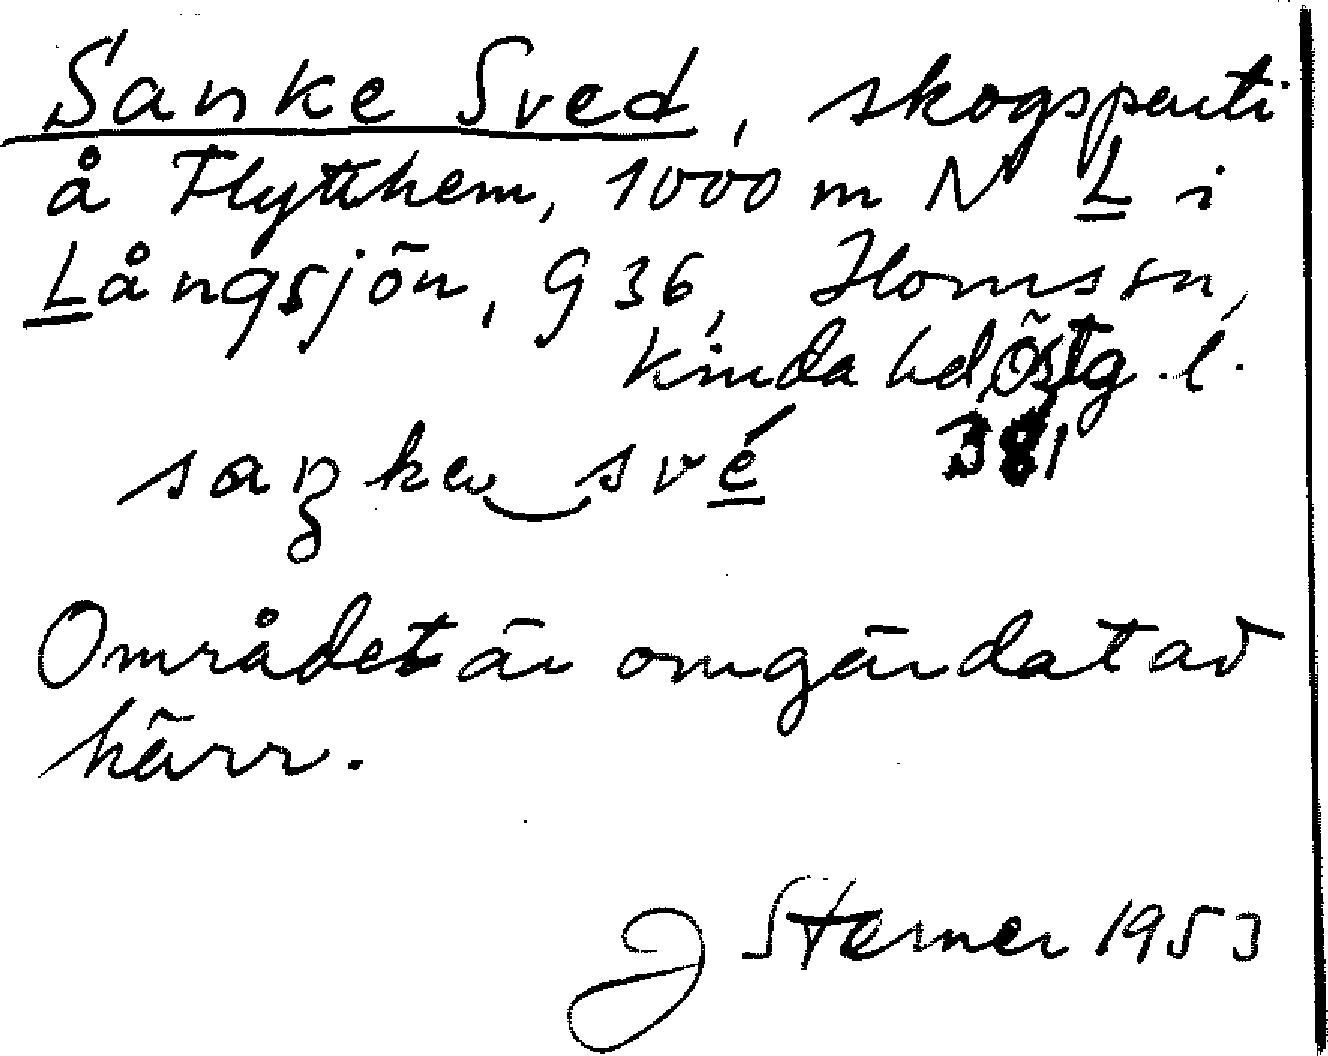 Sanke Sved, skogsparti
å Flytthem, 1000 m N L i
Långsjön, 936, Horns sn,
Kinda hd Östg. l.
381
saŋke své
Området är omgärdat av
kärr.
J Sterner 1953